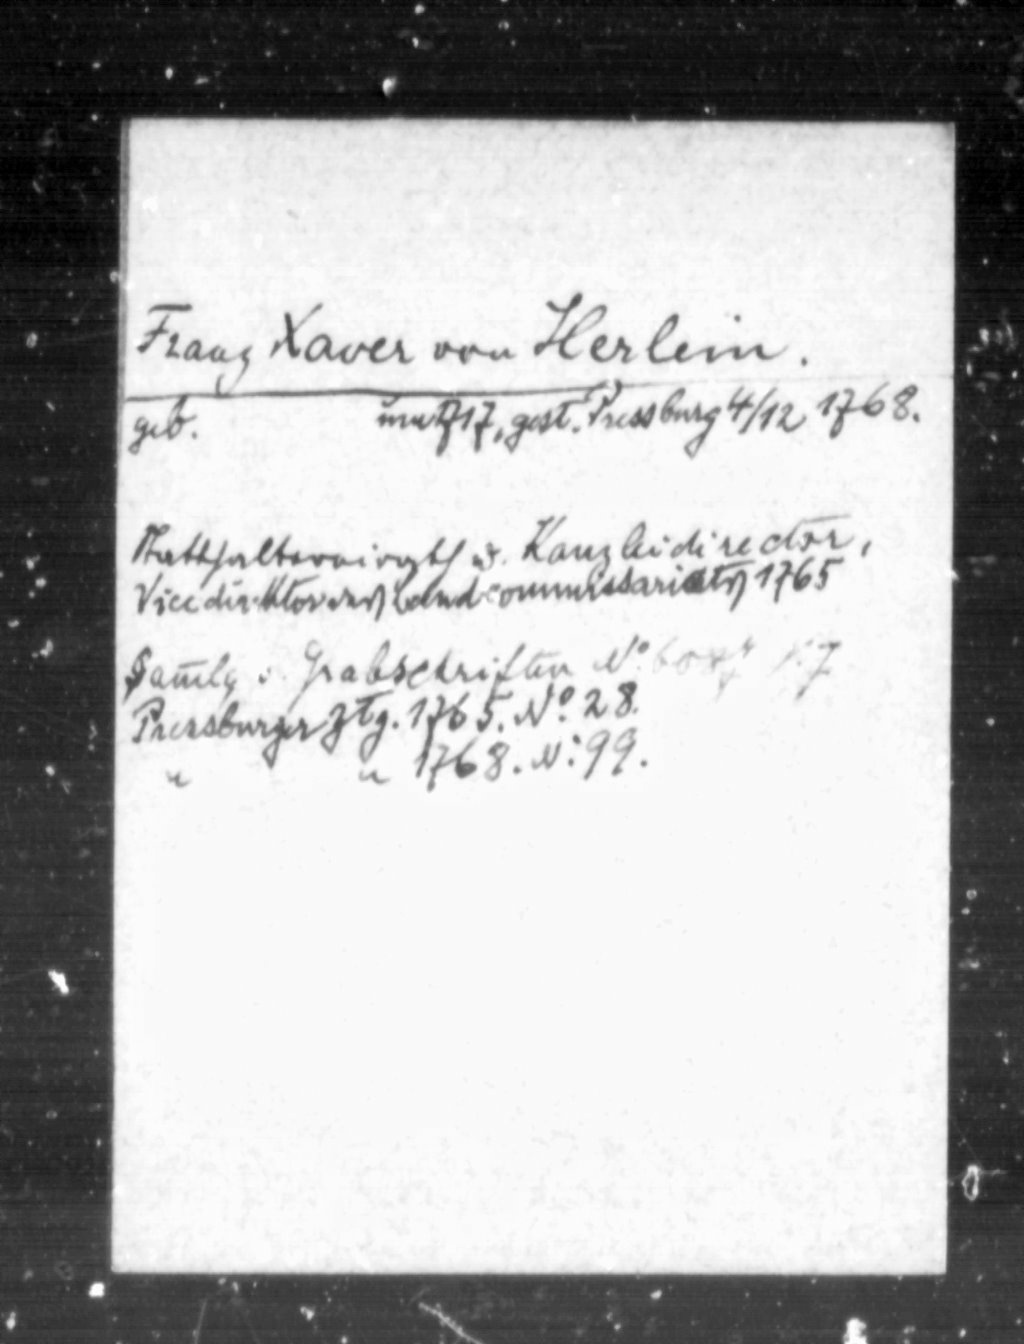 Franz Xaver von Herlein.
geb. 17, gest. Pressburg 4/12 1768.
Statthaltereirath u. Kanzleidirector,
Vicedirektor des Landcommissariats 1765
Samlg. Grabschriften No.
Pressburger Ztg. 1765. No. 28.
" " 1768. N: 99.